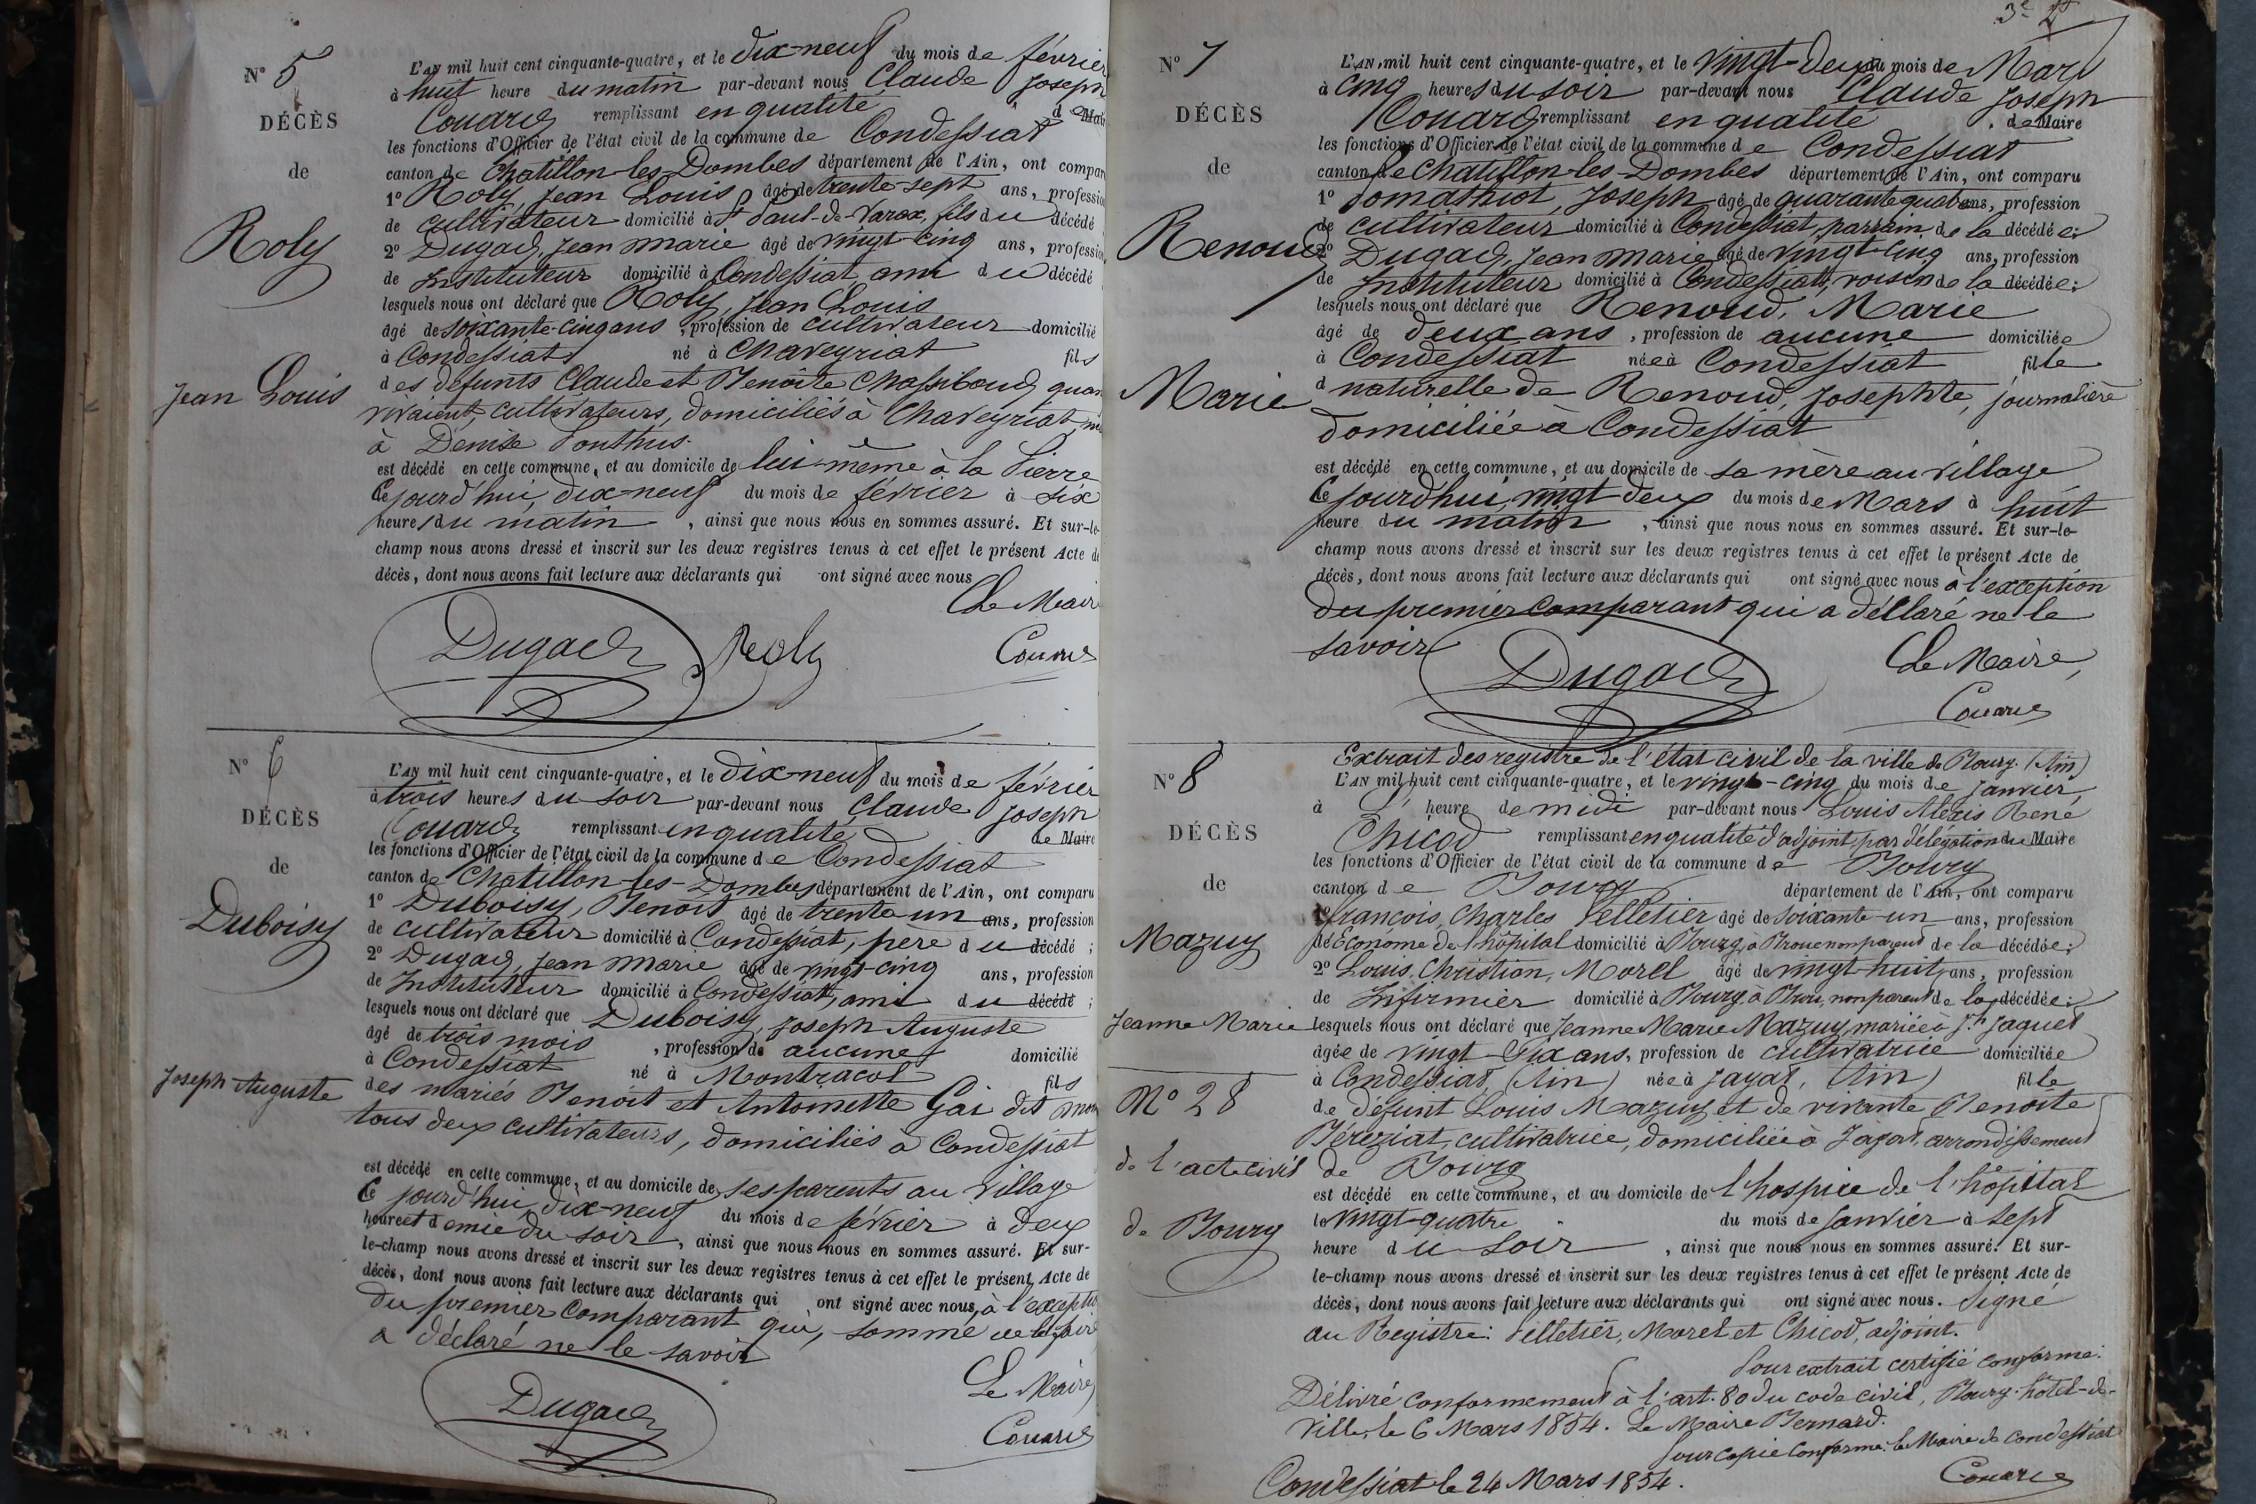 N° 5
DÉCÈS
de
Roly
Jean Louis
L'AN mil huit cent cinquante-quatre, et le dix-neuf du mois de février
à huit heure du matin par-devant nous Claude Joseph
Couard remplissant en qualité de Maire
les fonctions d'Officier de l'état civil de la commune de Condessiat
canton de Chatillon-les-Dombes département de l'Ain, ont comparu
1° Roly, Jean Louis âgé de trente-sept ans, profession
de cultivateur domicilié à St Paul-de-Varax, fils du décédé
2° Dugad, Jean Marie âgé de vingt-cinq ans, profession
de Instituteur domicilié à Condessiat, ami du décédé
lesquels nous ont déclaré que Roly, Jean Louis
âgé de soixante-cinq ans, profession de cultivateur domicilié
à Condessiat né à Chaveyriat fils
des défunts Claude et Benoîte Chassiboud, quan
vivaient, cultivateurs, domiciliés à Chaveyriat,
à Denise Ponthus.
est décédé en cette commune, et au domicile de lui-même à la Pierre
Ce jourd'hui, dix-neuf du mois de février à six
heures du matin, ainsi que nous nous en sommes assuré. Et sur-le-
champ nous avons dressé et inscrit sur les deux registres tenus à cet effet le présent Acte de
décès, dont nous avons fait lecture aux déclarants qui ont signé avec nous
Le Maire
Dugad Roly Couard
N° 6
DÉCÈS
de
Duboisy
Joseph Auguste
L'AN mil huit cent cinquante-quatre, et le dix-neuf du mois de février
à trois heures du soir par-devant nous Claude Joseph
Couard remplissant en qualité de Maire
les fonctions d'Officier de l'état civil de la commune de Condessiat
canton de Chatillon-les-Dombes département de l'Ain, ont comparu
1° Duboisy, Benoît âgé de trente-un ans, profession
de cultivateur domicilié à Condessiat, père du décédé ;
2° Dugad, Jean Marie âgé de vingt-cinq ans, profession
de Instituteur domicilié à Condessiat, ami du décédé ;
lesquels nous ont déclaré que Duboisy, Joseph Auguste
âgé de trois mois, profession de aucune domicilié
à Condessiat né à Montracol fils
des mariés Benoît et Antoinette Gai dit
tous deux cultivateurs, domiciliés à Condessiat
est décédé en cette commune, et au domicile de ses parents au village
Ce jourd'hui, dix-neuf du mois de février à deux
heures et demie du soir, ainsi que nous nous en sommes assuré. Et sur-
le-champ nous avons dressé et inscrit sur les deux registres tenus à cet effet le présent Acte de
décès, dont nous avons fait lecture aux déclarants qui ont signé avec nous, à l'exception
du premier comparant qui, sommé de le faire
a déclaré ne le savoir
Le Maire
Dugad Couard
N° 7
DÉCÈS
de
Renoud
Marie
L'AN mil huit cent cinquante-quatre, et le vingt-deux du mois de Mars
à cinq heures du soir par-devant nous Claude Joseph
Couard remplissant en qualité de Maire
les fonctions d'Officier de l'état civil de la commune de Condessiat
canton de Chatillon-les-Dombes département de l'Ain, ont comparu
1° Pomathiot, Joseph âgé de quarante quatre ans, profession
de cultivateur domicilié à Condessiat, parrain de la décédée;
2° Dugad, Jean Marie âgé de vingt-cinq ans, profession
de Instituteur domicilié à Condessiat, voisin de la décédée;
lesquels nous ont déclaré que Renoud, Marie
âgé de deux ans, profession de aucune domiciliée
à Condessiat née à Condessiat fille
d naturelle de Renoud, Josephte, journalière
domiciliée à Condessiat
est décédé en cette commune, et au domicile de sa mère au village
Ce jourd'hui, vingt-deux du mois de Mars à huit
heure du matin, ainsi que nous nous en sommes assuré. Et sur-le-
champ nous avons dressé et inscrit sur les deux registres tenus à cet effet le présent Acte de
décès, dont nous avons fait lecture aux déclarants qui ont signé avec nous à l'exception
du premier comparant qui a déclaré ne le
savoir
Le Maire,
Dugad Couard
N° 8
DÉCÈS
de
Mazuy
Jeanne Marie
N° 28
de l'acte civil
de Bourg
Extrait des registre de l'état civil de la ville de Bourg. (Ain)
L'AN mil huit cent cinquante-quatre, et le vingt-cinq du mois de janvier,
à heure de midi par-devant nous Louis Alexis René
Chicod remplissant en qualité d'adjoint, par délégation du Maire
les fonctions d'Officier de l'état civil de la commune de Bourg
canton de Bourg département de l'Ain, ont comparu
1° François, Charles Pelletier âgé de soixante-un ans, profession
de Econome de l'hôpital domicilié à Bourg, à Brou non parent de la décédée;
2° Louis, Christian, Morel âgé de vingt-huit ans, profession
de Infirmier domicilié à Bourg, à Brou, non parent de la décédée;
lesquels nous ont déclaré que Jeanne Marie Mazuy, mariée à Jh Jaquet
âgée de vingt-six ans, profession de cultivatrice domiciliée
à Condessiat, (Ain) née à Jayat, (Ain) fille
de défunt Louis Mazuy et de vivante Benoîte
Péreziat, cultivatrice, domiciliée à Jayat, arrondissement
de Bourg
est décédé en cette commune, et au domicile de l'hospice de l'hôpital
le vingt-quatre du mois de janvier à sept
heure du soir, ainsi que nous nous en sommes assuré. Et sur-
le-champ nous avons dressé et inscrit sur les deux registres tenus à cet effet le présent Acte de
décès, dont nous avons fait lecture aux déclarants qui ont signé avec nous. Signé
au Registre: Pelletier, Morel et Chicod, adjoint.
Pour extrait certifié conforme:
Délivré conformement à l'art. 80 du code civil, Bourg-hôtel-de-
Ville, le 6 Mars 1854. Le Maire Bernard.
Pour copie conforme: le Maire de Condessiat
Condessiat le 24 Mars 1854. Couard